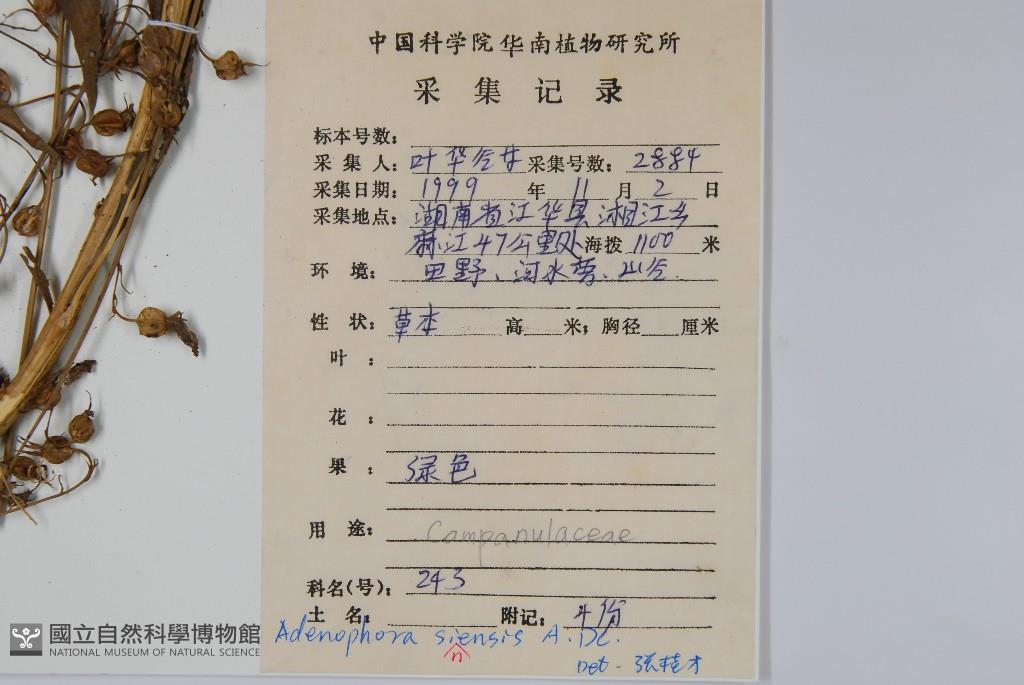 中国科学院华南植物研究所
采集记录
标本号数:
采集人: 叶华谷 采集号数: 2884
采集日期: 1999 年 11 月 2 日
采集地点: 湖南省江华县湘江乡
麻江47公里处 海拨 1100 米
环境: 田野、河水旁、山谷.
性状: 草本 高 米; 胸径 厘米
叶:
花:
果: 绿色
用途: Campanulaceae
科名(号): 243
土名: 附记: 4份
Adenophora siensis A. DC.
n
Det. 张桂才
國立自然科學博物館
NATIONAL MUSEUM OF NATURAL SCIENCE